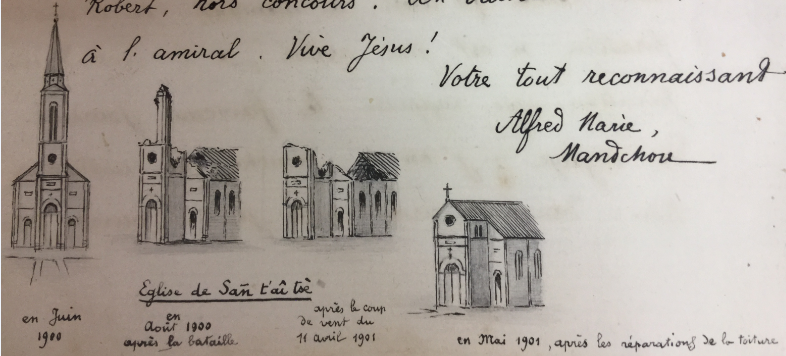 Robert, hors concours.
à l'amiral. Vive Jésus!
Votre tout reconnaissant
Alfred Marie,
Mandchou
Eglise de Sañ t'aî tsè
en Juin
1900
en
Août 1900
après la bataille
après le coup
de vent du
11 avril 1901
en Mai 1901, après les réparations de la toiture